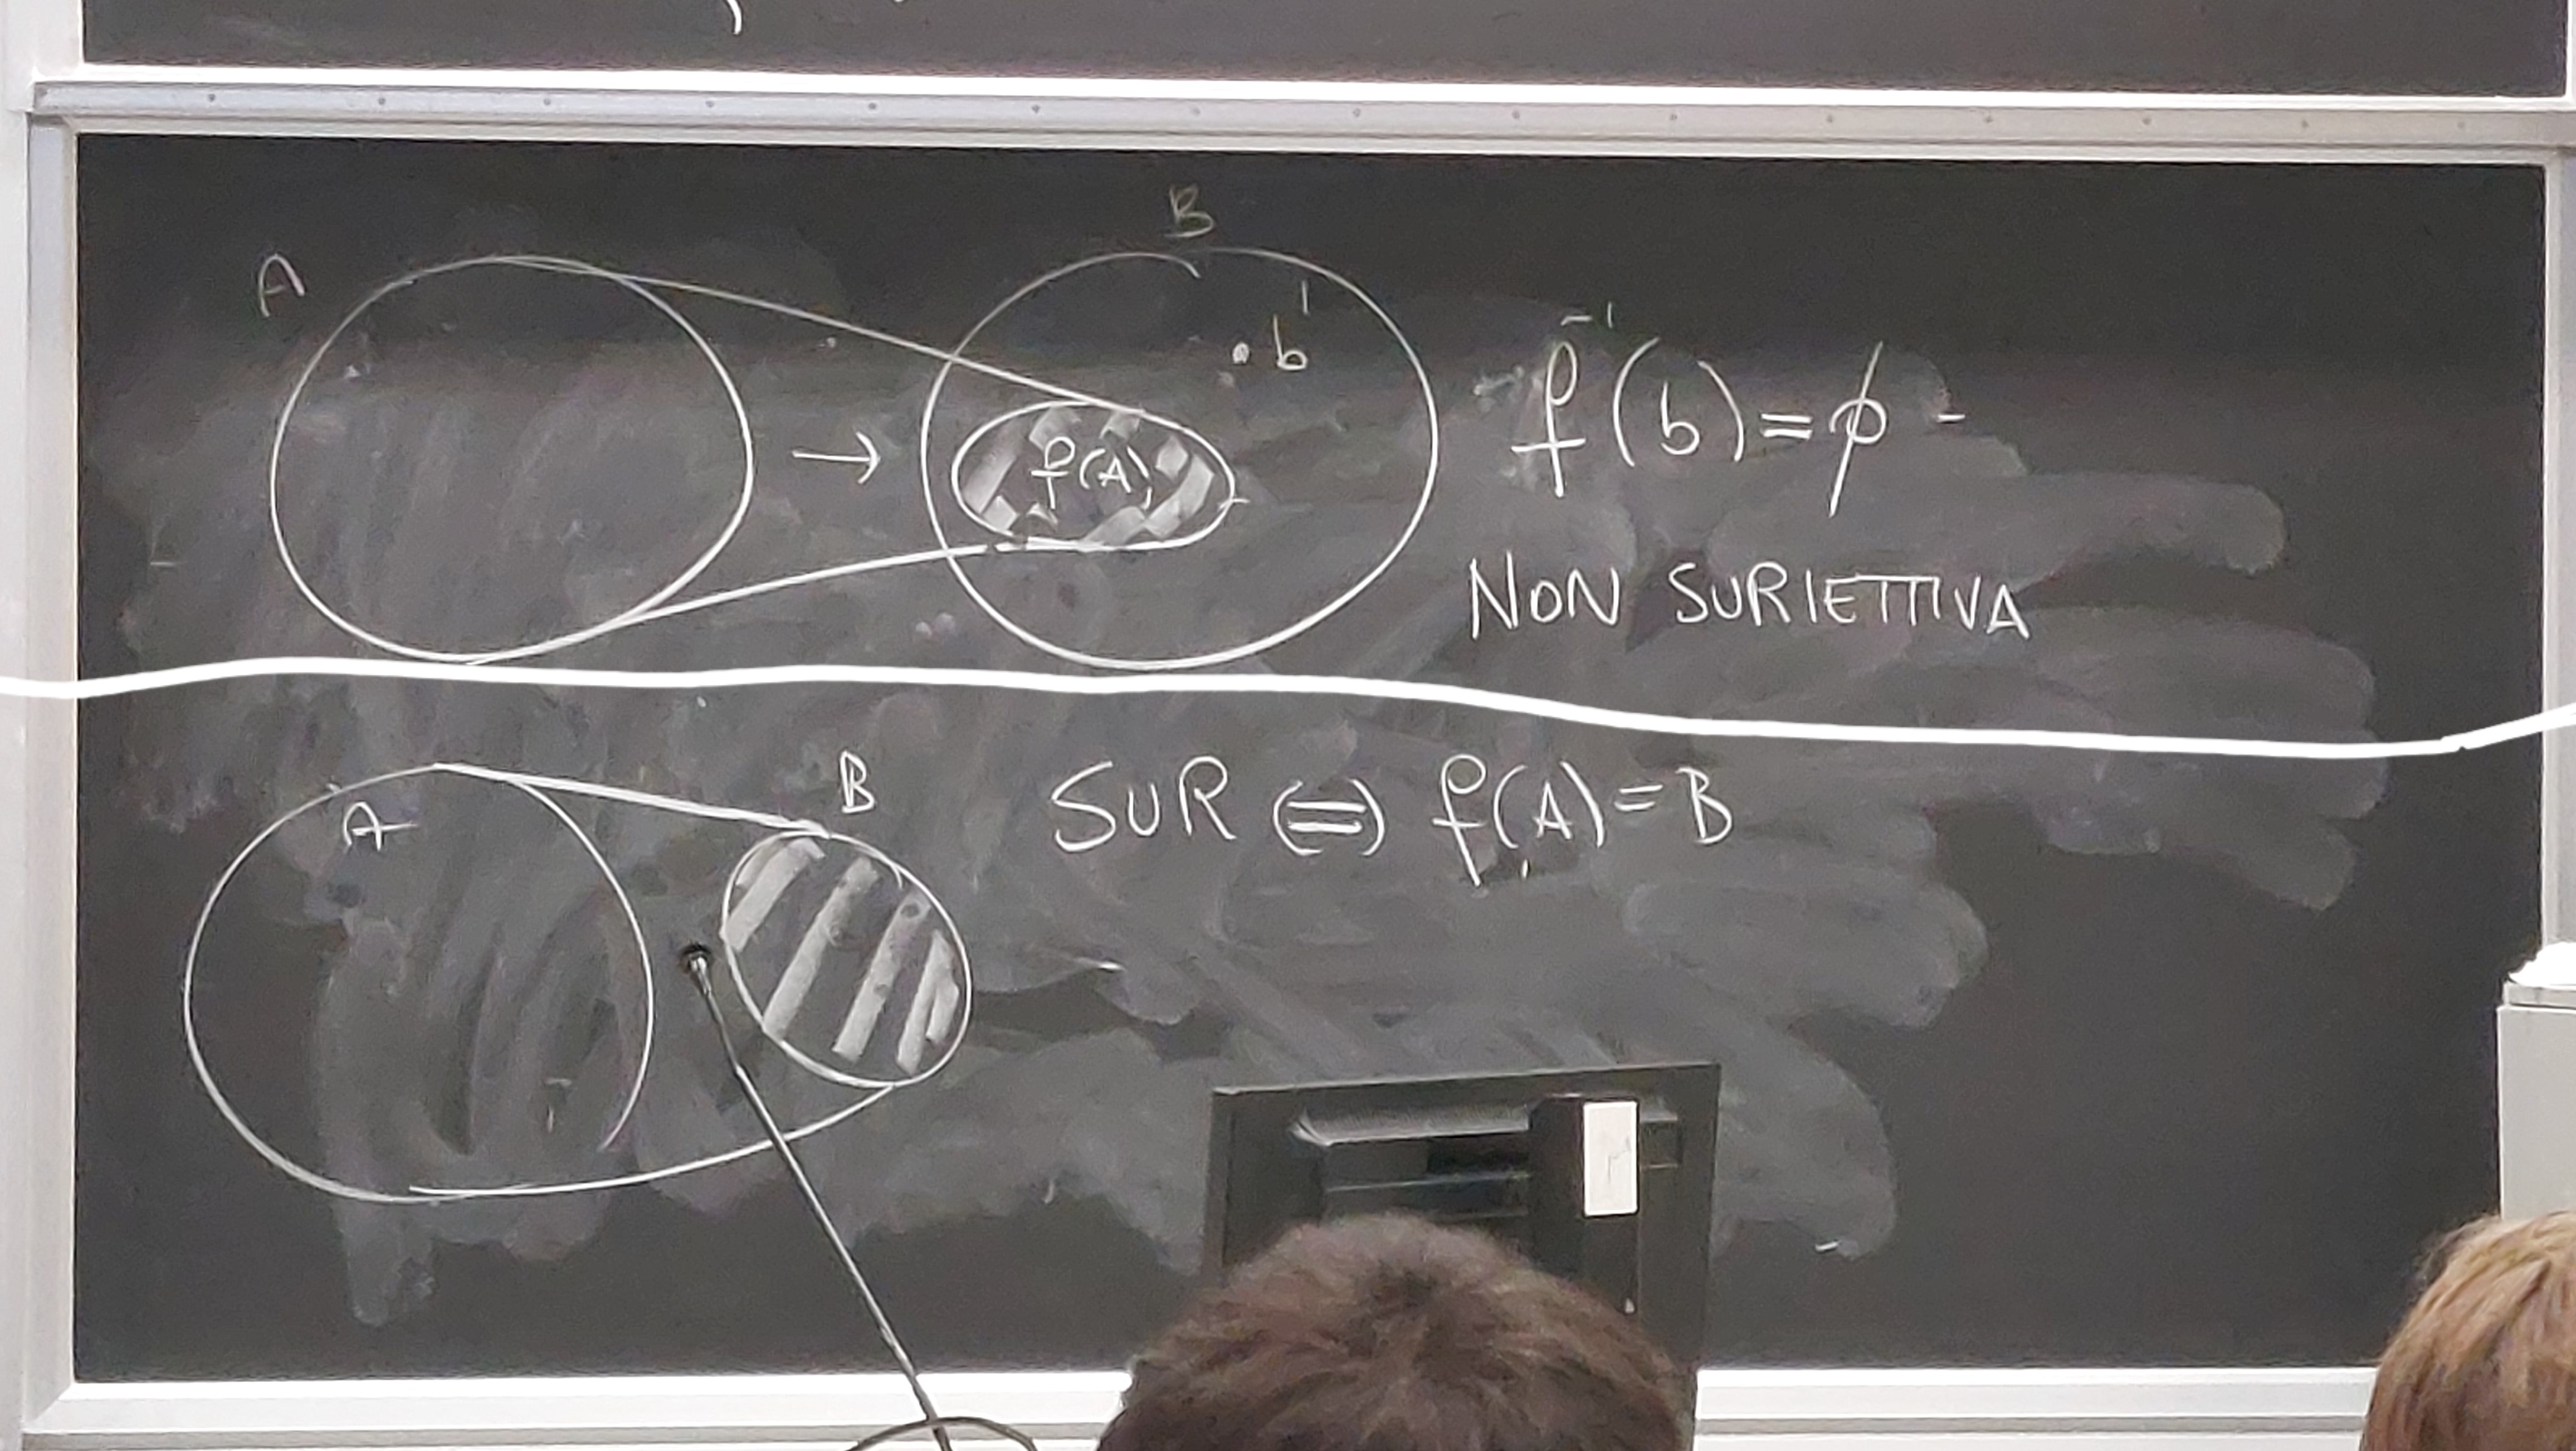 A
B
b
f(A)
f⁻¹(b)=ϕ
NON SURIETTIVA
A
B
SUR ⇔ f(A)=B